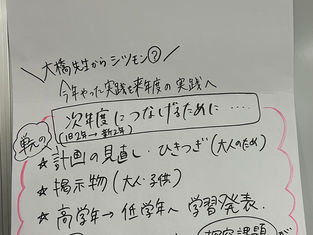 大橋先生からシツモン?
今年やった実践を来年度の実践へ
次年度につなげるために ‥‥‥
(旧2年→新2年)
単元の
☆計画の見直し・ひきつぎ(大人のため)
☆掲示物(大人・子供)
☆高学年→低学年へ 学習発表.
探究課題が